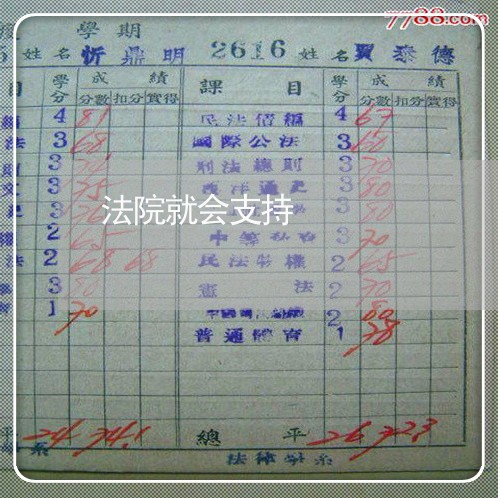 7788.com
學期
5 姓名 忻鼎明 2616 姓名 賈泰德
目 學分 成績 課目 學分 成績
分數 扣分 實得 分數 扣分 實得
4 81 民法債編 4 67
法 3 68 國際公法 3 60
3 刑法總則 3 70
文 3 75 西洋通史 3 80
史 3 3 80
權 2 65 3 70
法 2 68 68 民法物權 2 65
3 80 憲法 2 70
1 70 2 80
普通體育 1 78
法院就会支持
平 24 74.1 總平 26 72.3
系 法律學系